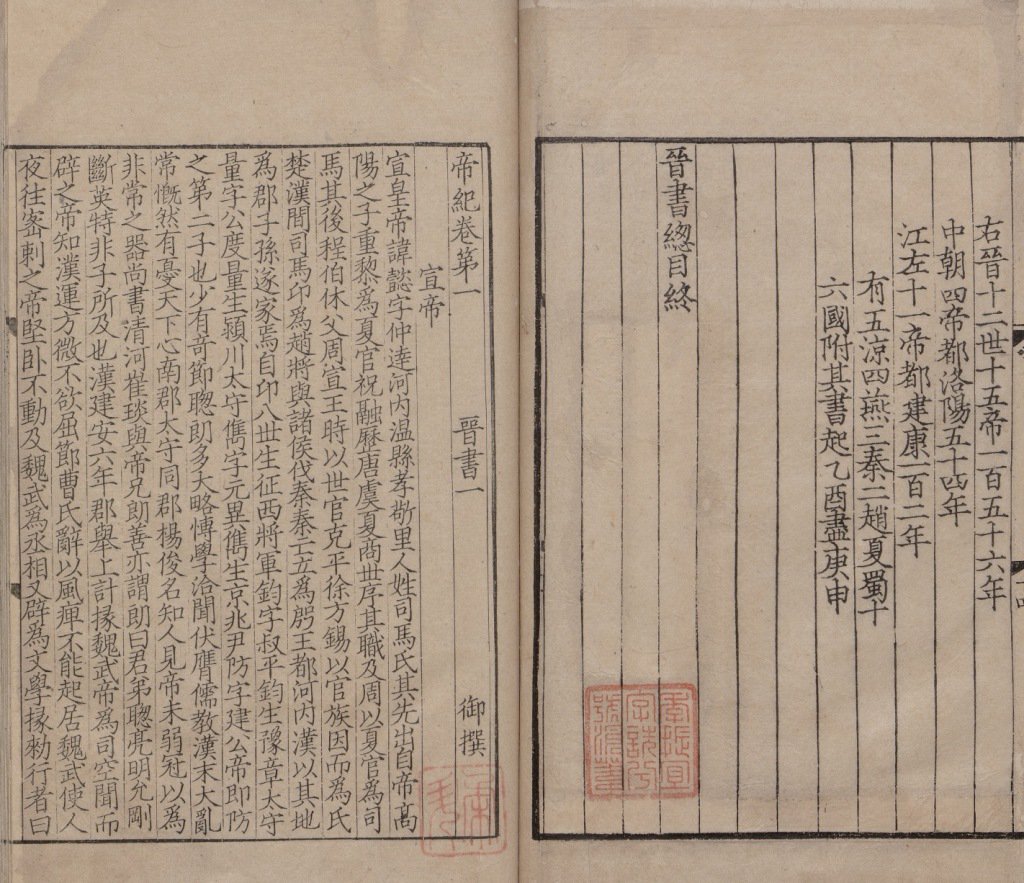 右晉十二世十五帝一百五十六年
中朝四帝都洛陽五十四年
江左十一帝都建康一百二年
有五涼四燕三秦二趙夏蜀十
六國附其書起乙酉盡庚申
晉書緫目終
季振宜
字詵兮
號滄葦
帝紀卷第一 晉書一 御撰
宣帝
宣皇帝諱懿字仲逹河内温縣孝敬里人姓司馬氏其先出自帝髙
陽之子重黎爲夏官祝融歷唐虞夏商世序其職及周以夏官爲司
馬其後程伯休父周宣王時以世官克平徐方錫以官族因而爲氏
楚漢間司馬卬爲趙將與諸侯伐秦秦亡立爲殷王都河内漢以其地
爲郡子孫遂家焉自卬八世生征西將軍鈞字叔平鈞生豫章太守
量字公度量生潁川太守儁字元異儁生京兆尹防字建公帝即防
之第二子也少有奇節聦朗多大略博學洽聞伏膺儒教漢末大亂
常慨然有憂天下心南郡太守同郡楊俊名知人見帝未弱冠以爲
非常之器尚書清河崔琰與帝兄朗善亦謂朗曰君弟聦亮明允剛
斷英特非子所及也漢建安六年郡舉上計掾魏武帝爲司空聞而
辟之帝知漢運方微不欲屈節曹氏辭以風痺不能起居魏武使人
夜往宻刺之帝堅卧不動及魏武爲丞相又辟爲文學掾勑行者曰